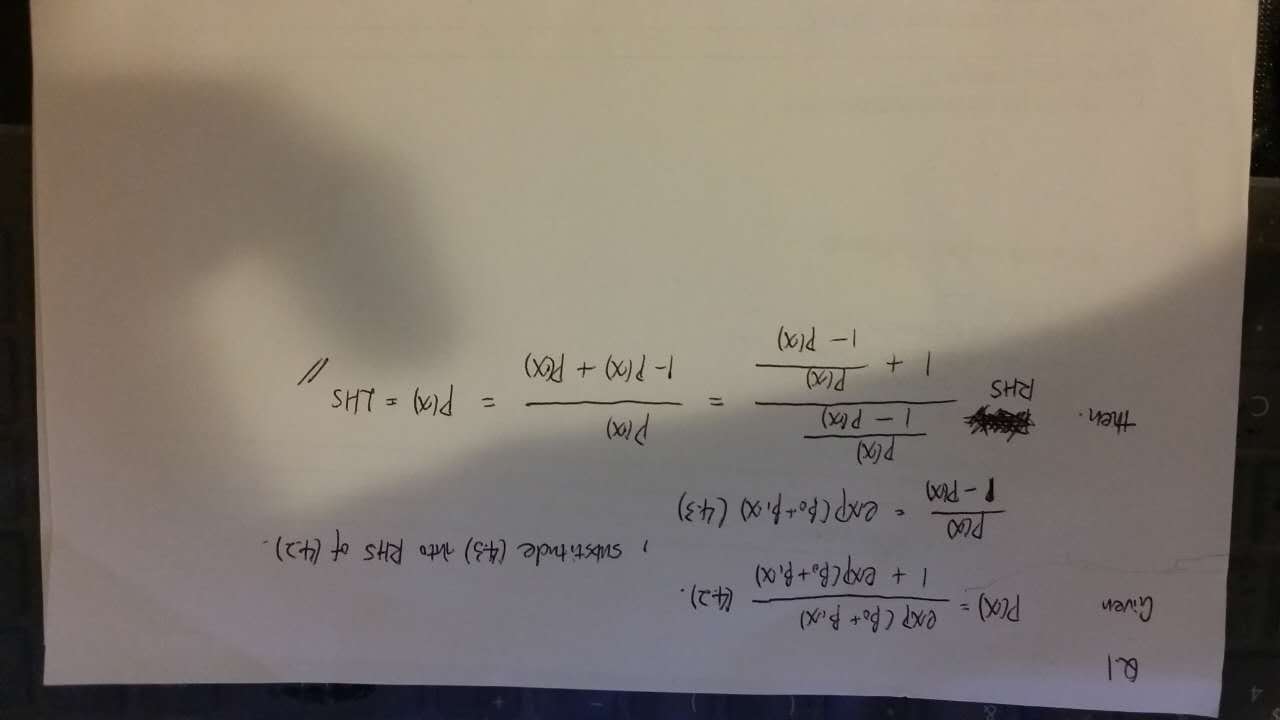 Q.1
Given P(x) = exp(β₀+β₁x) / 1 + exp(β₀+β₁x) (4.2).
P(x) / 1 - P(x) = exp(β₀+β₁x) (4.3) , substitude (4.3) into RHS of (4.2).
then. RHS P(x) / 1 - P(x) / 1 + P(x) / 1 - P(x) = P(x) / 1 - P(x) + P(x) = P(x) = LHS //